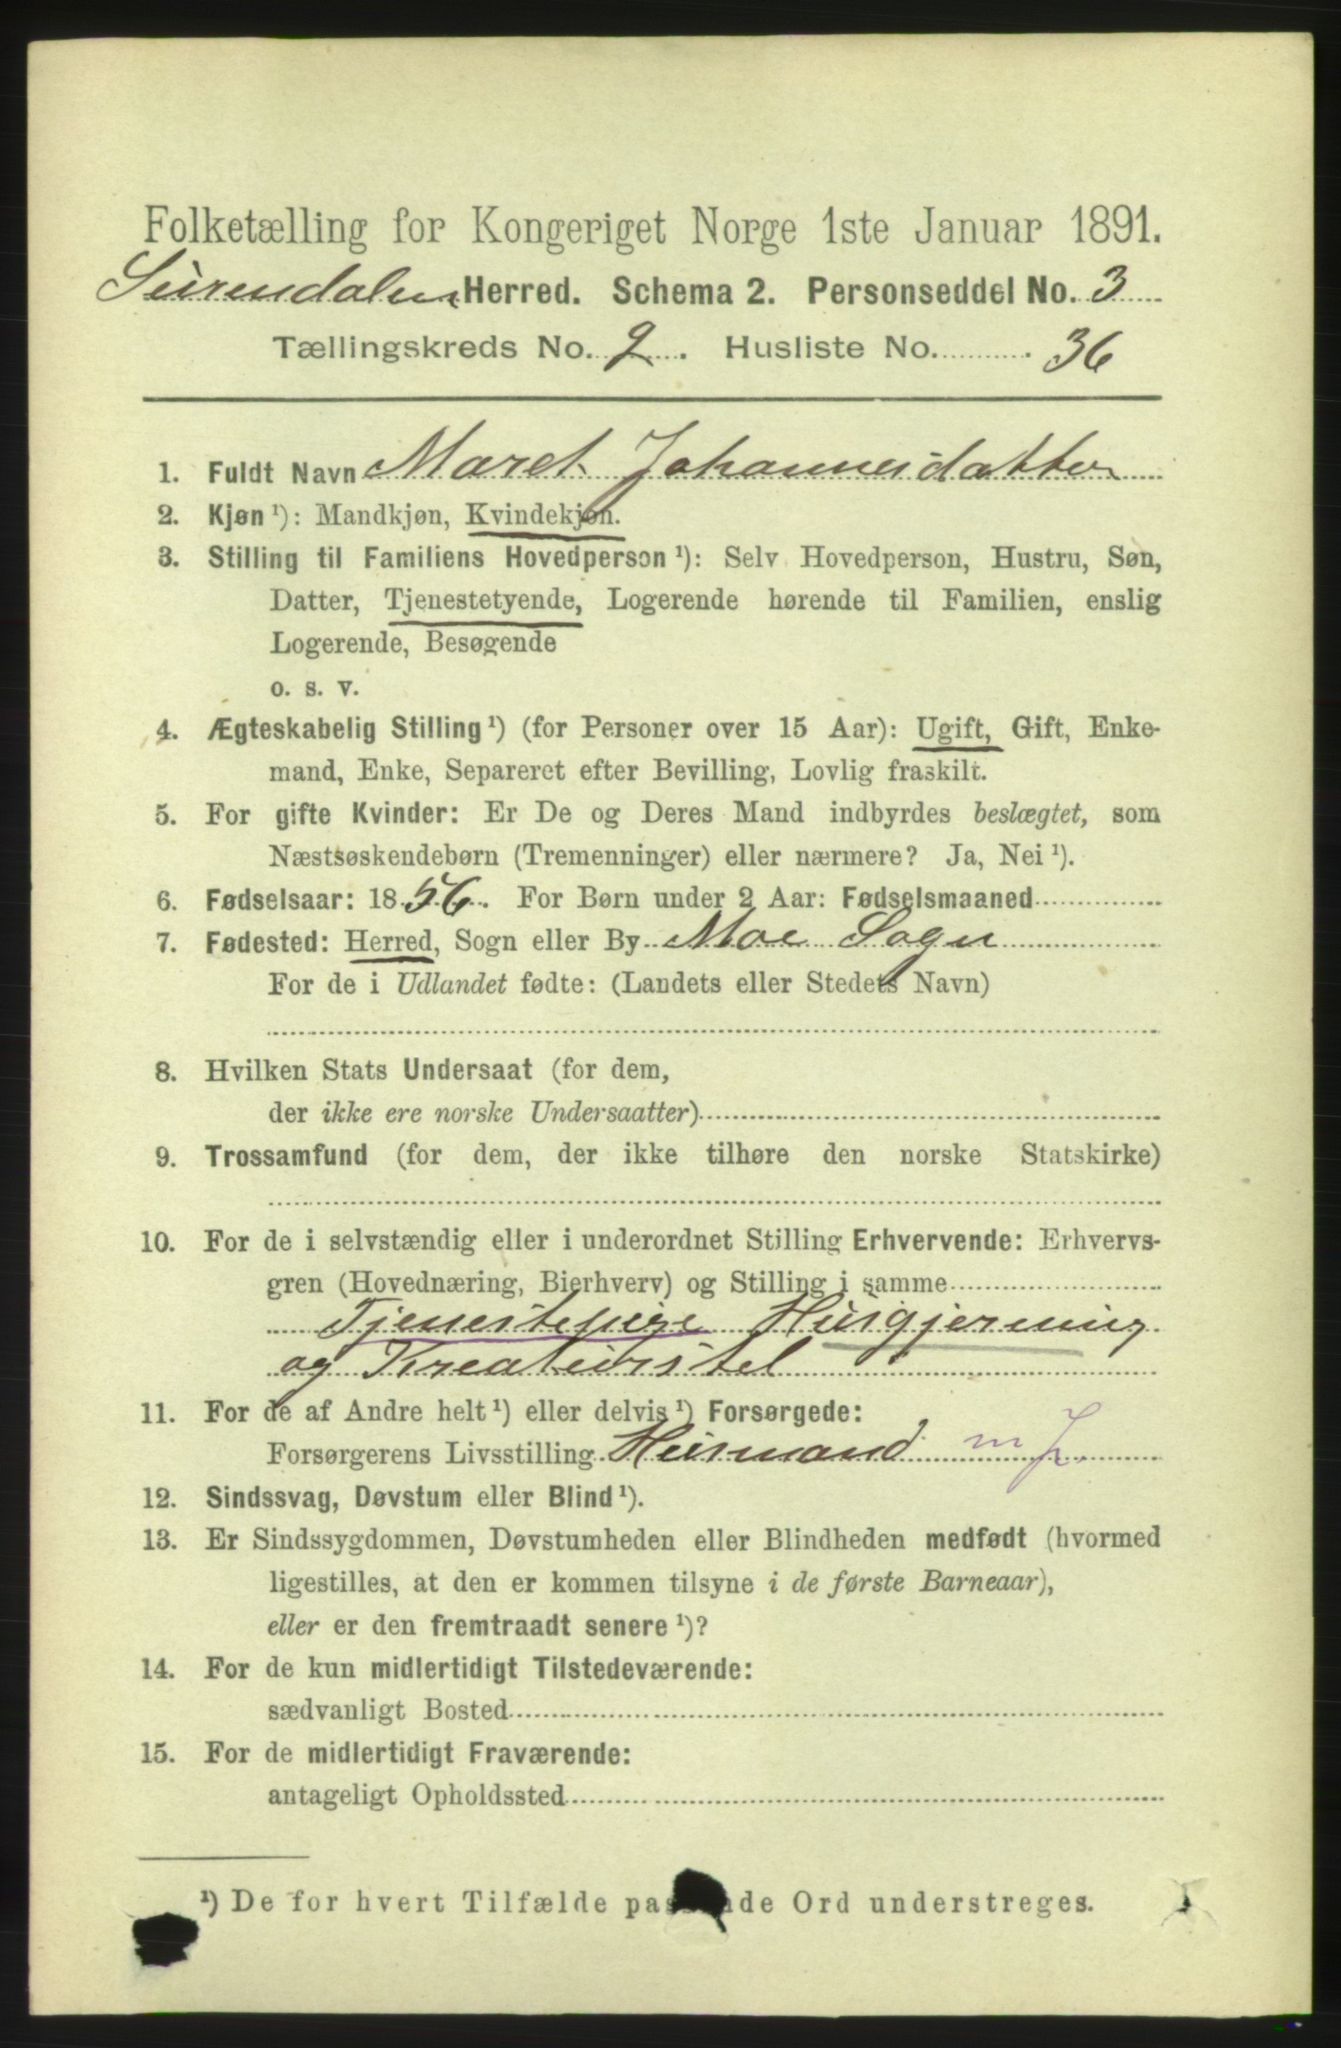 Folketælling for Kongeriget Norge 1ste Januar 1891.
Surendalen Herred. Schema 2. Personseddel No. 3
Tællingskreds No. 2. Husliste No. 36
1. Fuldt Navn Maret Johannesdatter
2. Kjøn ¹): Mandkjøn, Kvindekjøn.
3. Stilling til Familiens Hovedperson ¹): Selv Hovedperson, Hustru, Søn,
Datter, Tjenestetyende, Logerende hørende til Familien, enslig
Logerende, Besøgende
o. s. v.
4. Ægteskabelig Stilling ¹) (for Personer over 15 Aar): Ugift, Gift, Enke-
mand, Enke, Separeret efter Bevilling, Lovlig fraskilt.
5. For gifte Kvinder: Er De og Deres Mand indbyrdes beslægtet, som
Næstsøskendebørn (Tremenninger) eller nærmere? Ja, Nei ¹).
6. Fødselsaar: 1856. For Børn under 2 Aar: Fødselsmaaned
7. Fødested: Herred, Sogn eller By Moe Sogn
For de i Udlandet fødte: (Landets eller Stedets Navn)
8. Hvilken Stats Undersaat (for dem,
der ikke ere norske Undersaatter)
9. Trossamfund (for dem, der ikke tilhøre den norske Statskirke)
10. For de i selvstændig eller i underordnet Stilling Erhvervende: Erhvervs-
gren (Hovednæring, Bierhverv) og Stilling i samme
Tjenestepige Husgjerning
og Kreaturstel
11. For de af Andre helt ¹) eller delvis ¹) Forsørgede:
Forsørgerens Livsstilling Husmand m J.
12. Sindssvag, Døvstum eller Blind ¹).
13. Er Sindssygdommen, Døvstumheden eller Blindheden medfødt (hvormed
ligestilles, at den er kommen tilsyne i de første Barneaar),
eller er den fremtraadt senere ¹)?
14. For de kun midlertidigt Tilstedeværende:
sædvanligt Bosted
15. For de midlertidigt Fraværende:
antageligt Opholdssted
¹) De for hvert Tilfælde passende Ord understreges.